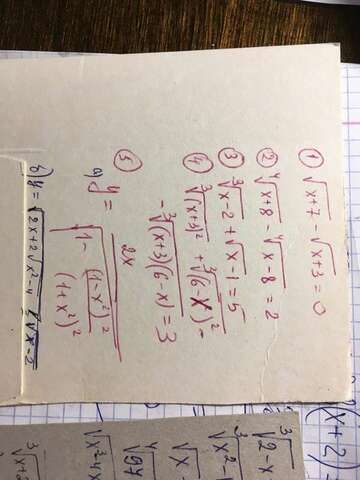 ① √x+7 - √x+3 = 0
② ⁴√x+8 - ⁴√x-8 = 2
③ ³√x-2 + √x-1 = 5
④ ³√(x+3)² + ³√(6-x)² -
- ³√(x+3)(6-x) = 3
⑤
а) y = 2x / √1 - (1-x²)² / (1+x²)²
б) y = √2x+2√x²-4
√x-2
³√2-x
³√x²-
√x-
⁴√97
√x²-4x
³√x+
(x+2)